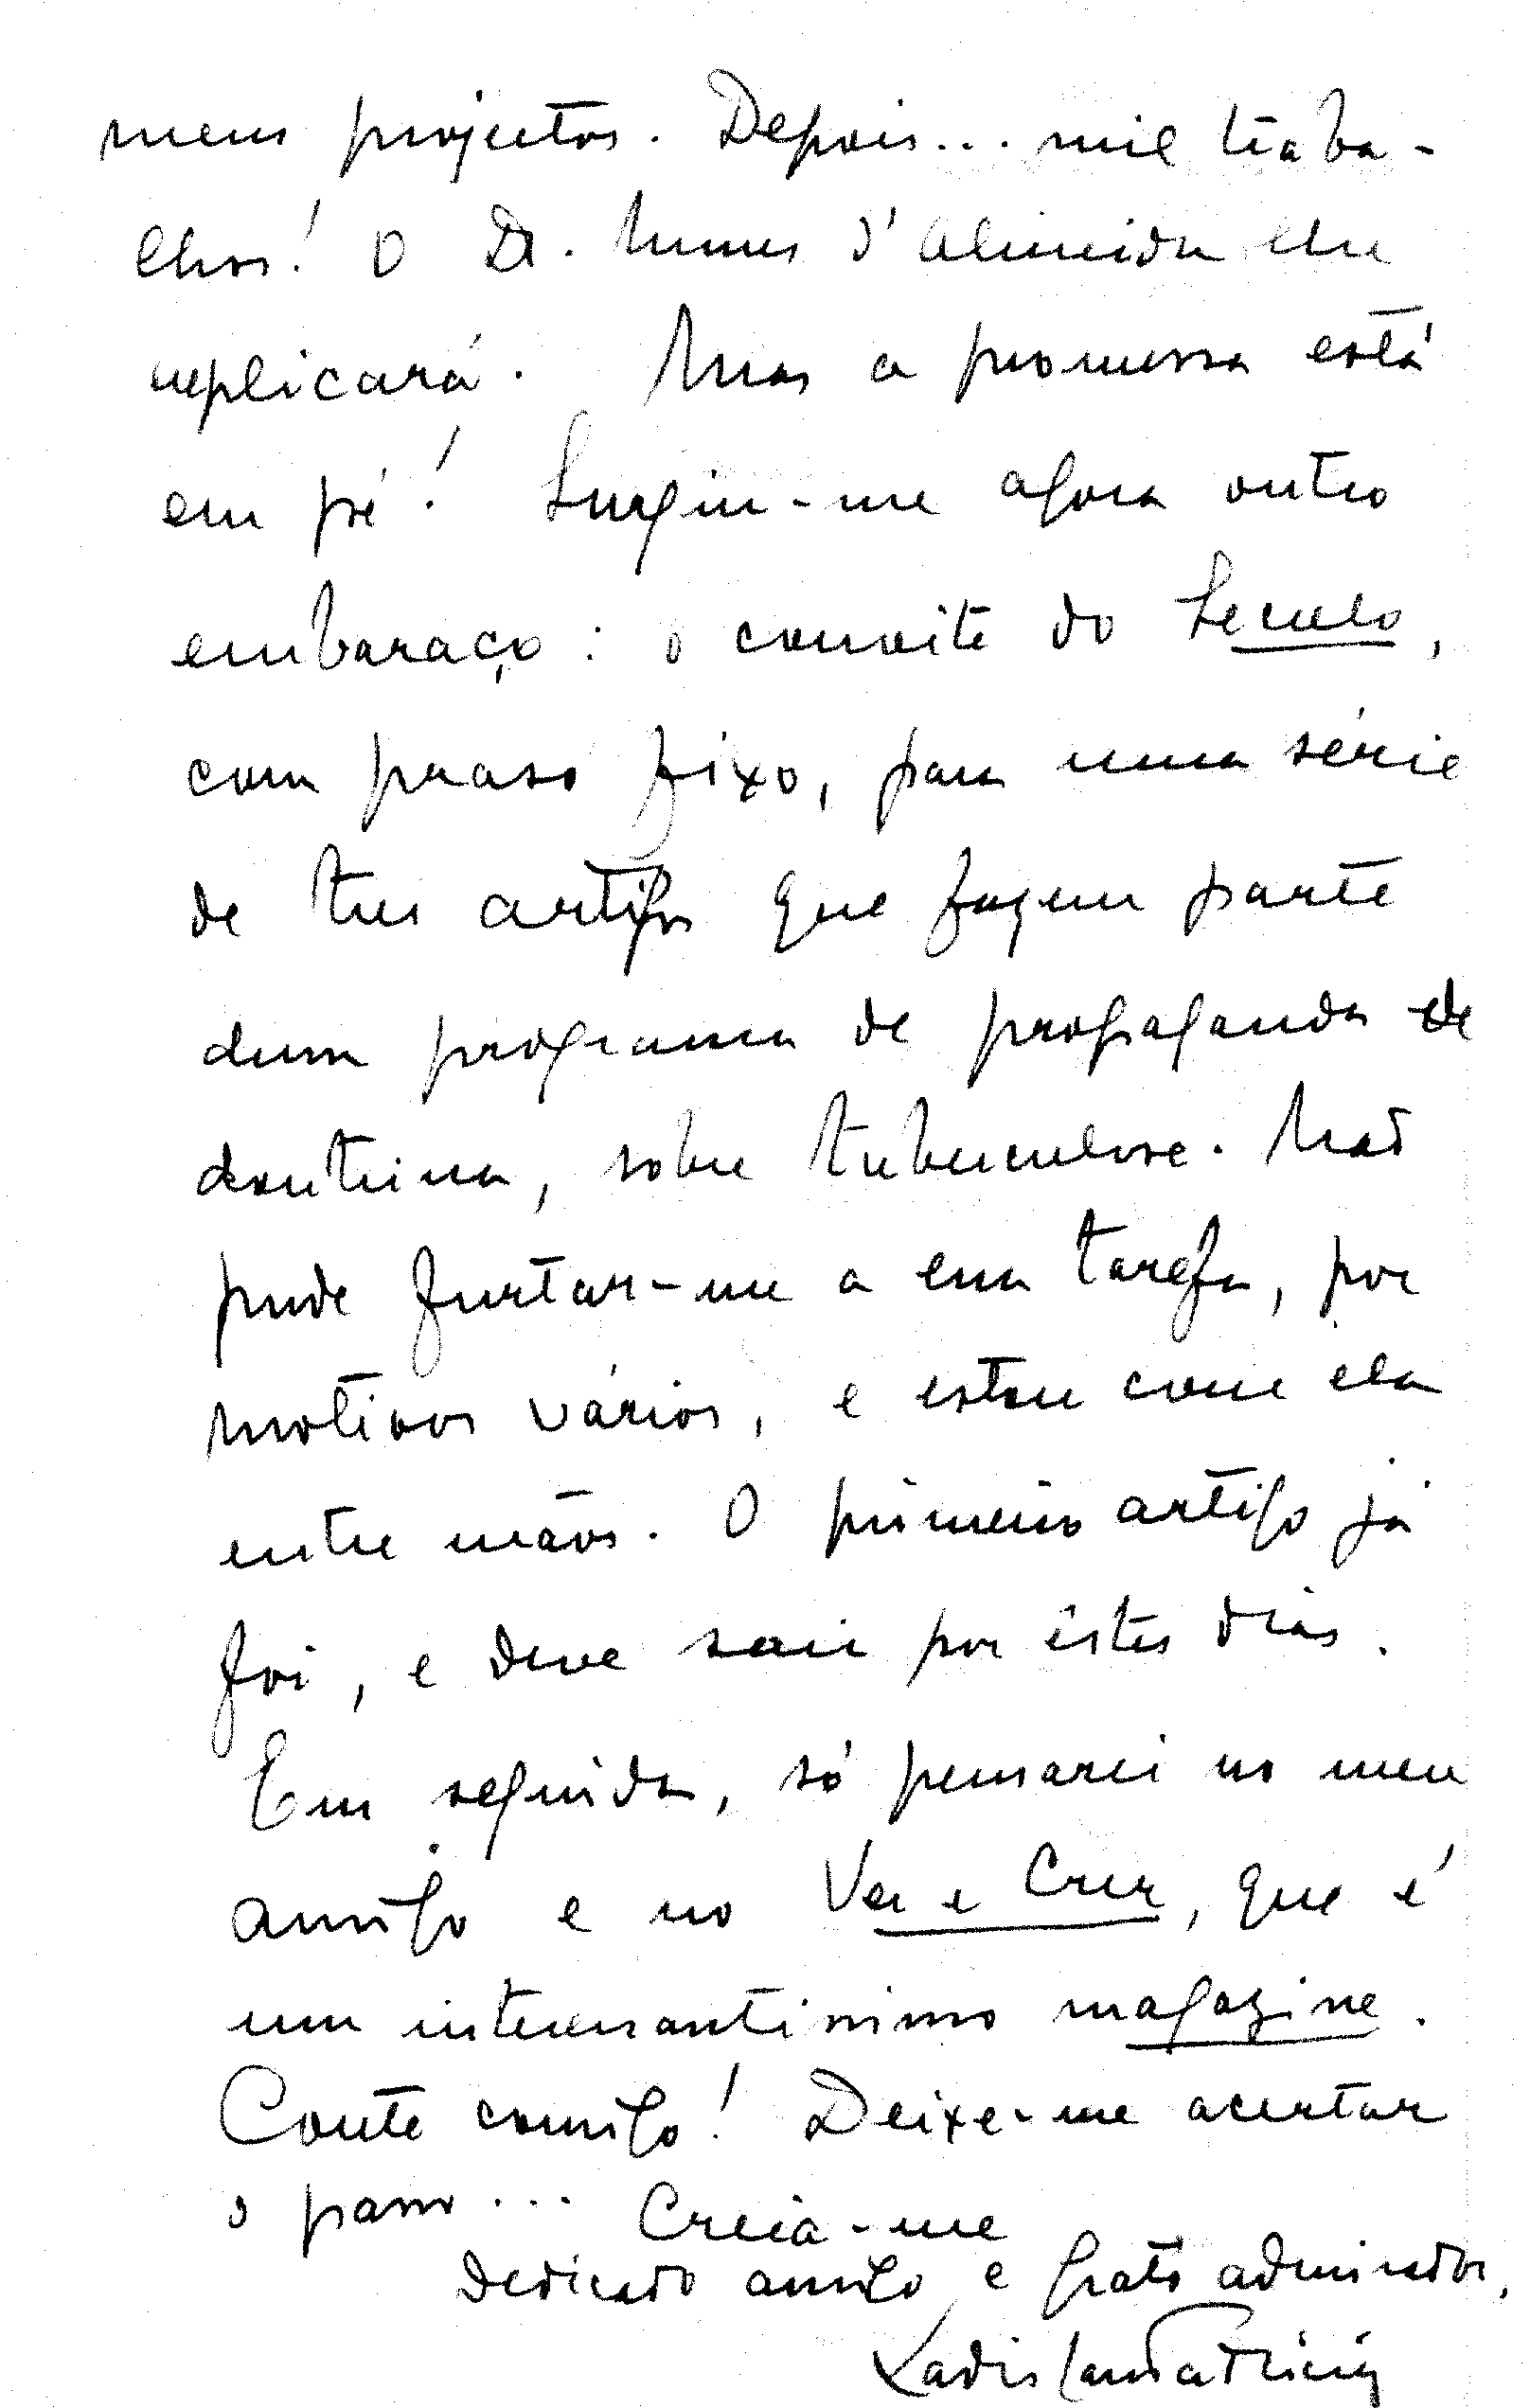 meus projectos. Depois... mil traba-
lhos! O Dr. Nunes d'Almeida lhe
explicará. Mas a promessa está
em pé! Surgiu-me agora outro
embaraço: o convite do Seculo,
com praso fixo, para uma série
de tres artigos que fazem parte
dum programa de propaganda e de
doutrina, sobre tuberculose. Não
pude furtar-me a essa tarefa, por
motivos vários, e estou com ela
entre mãos. O primeiro artigo já
foi, e deve sair por êstes dias.
Em seguida, só pensarei no meu
amigo e no Ver e Crer, que é
um interessantissimo magazine.
Conte comigo! Deixe-me acertar
o passo... Creia-me
dedicado amigo e grato admirador,
Ladislau Patricio